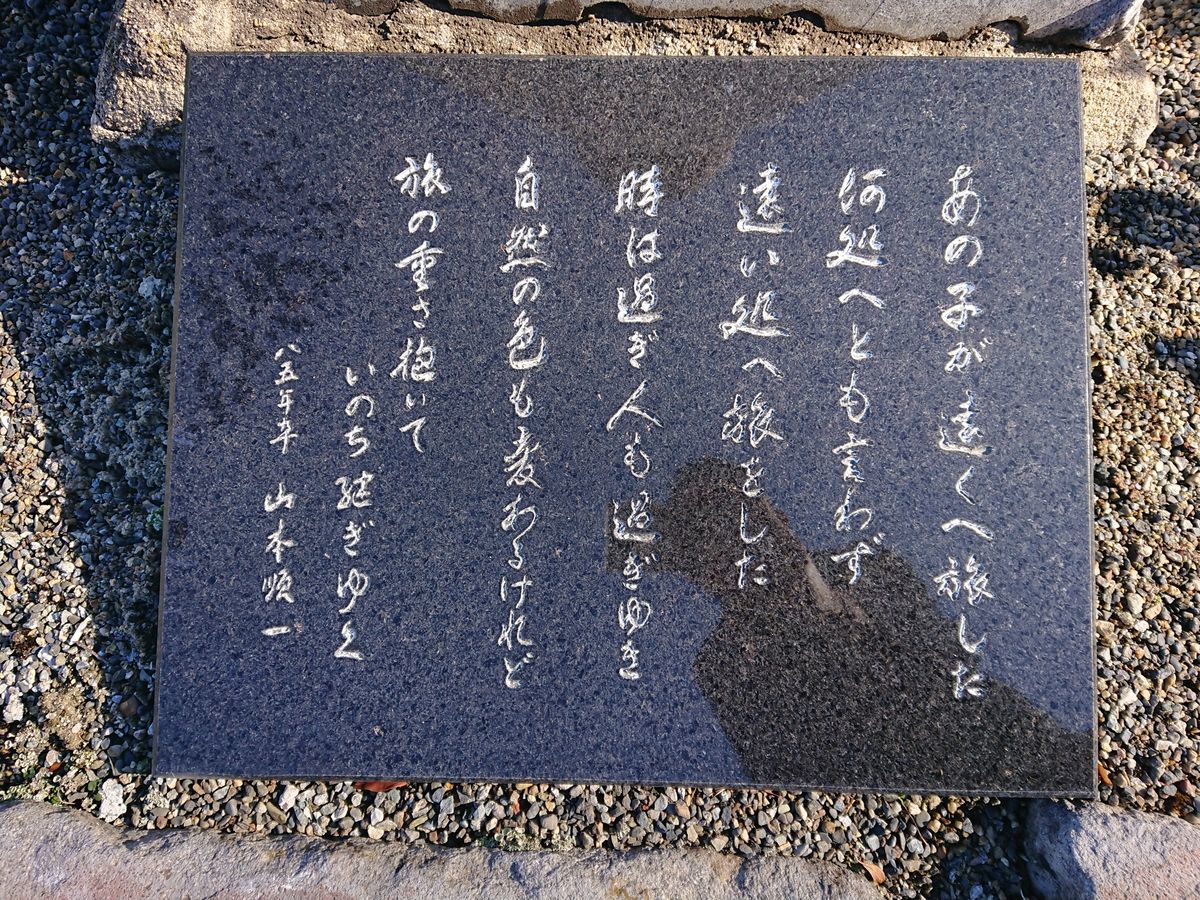 あの子が遠くへ旅した
何処へとも言わず
遠い処へ旅をした
時は過ぎ人も過ぎゆき
自然の色も変わるけれど
旅の重さ抱いて
いのち継ぎゆく
八五年卒 山本順一